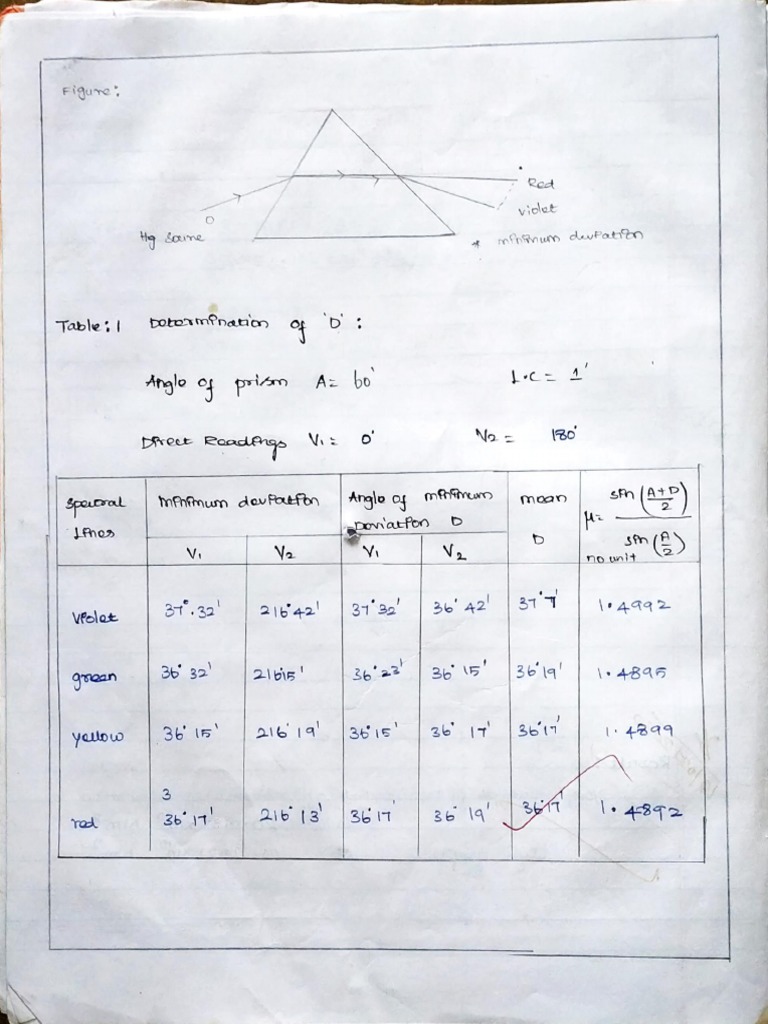 Figure:
Red
violet
O
Hg Source
* minimum deviation
Table: 1 Determination of 'D' :
Angle of prism A = 60° L.C = 1'
Direct Readings V1 = 0° V2 = 180°
Spectral Lines | minimum deviation | Angle of minimum Deviation D | mean D | μ = sin (A+D/2) / sin (A/2) no unit
V1 | V2 | V1 | V2
violet | 37°.32' | 216°42' | 37°32' | 36°42' | 37°7' | 1.4992
green | 36°32' | 216°15' | 36°23' | 36°15' | 36°19' | 1.4895
yellow | 36°15' | 216°19' | 36°15' | 36°17' | 36°17' | 1.4899
3
red | 36°17' | 216°13' | 36°17' | 36°19' | 36°17' | 1.4892